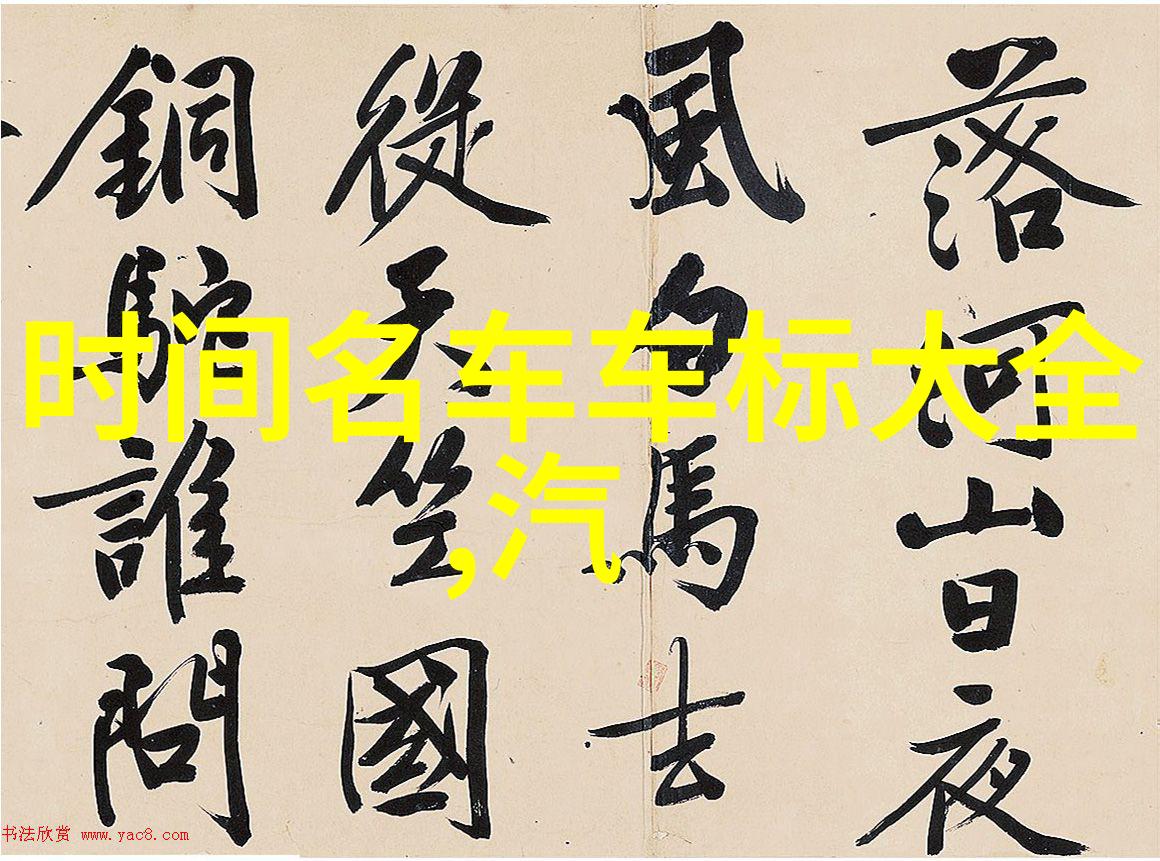 落河山日夜
風白馬去
從天竺國
銅駝誰問
时间名车车标大全
,汽
书法欣赏 www.yac8.com